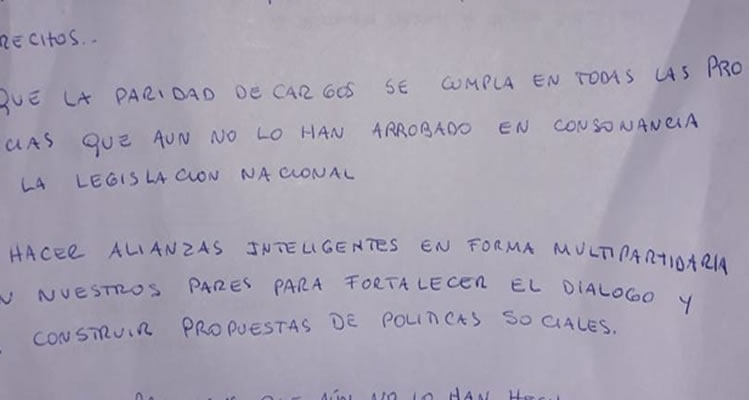 RECITOS..
QUE LA PARIDAD DE CARGOS SE CUMPLA EN TODAS LAS PRO
CIAS QUE AUN NO LO HAN ARROBADO EN CONSONANCIA
LA LEGISLACION NACIONAL
HACER ALIANZAS INTELIGENTES EN FORMA MULTIPARTIDARIA
N NUESTROS PARES PARA FORTALECER EL DIALOGO Y
CONSTRUIR PROPUESTAS DE POLITICAS SOCIALES.
QUE AÚN NO LO HAN